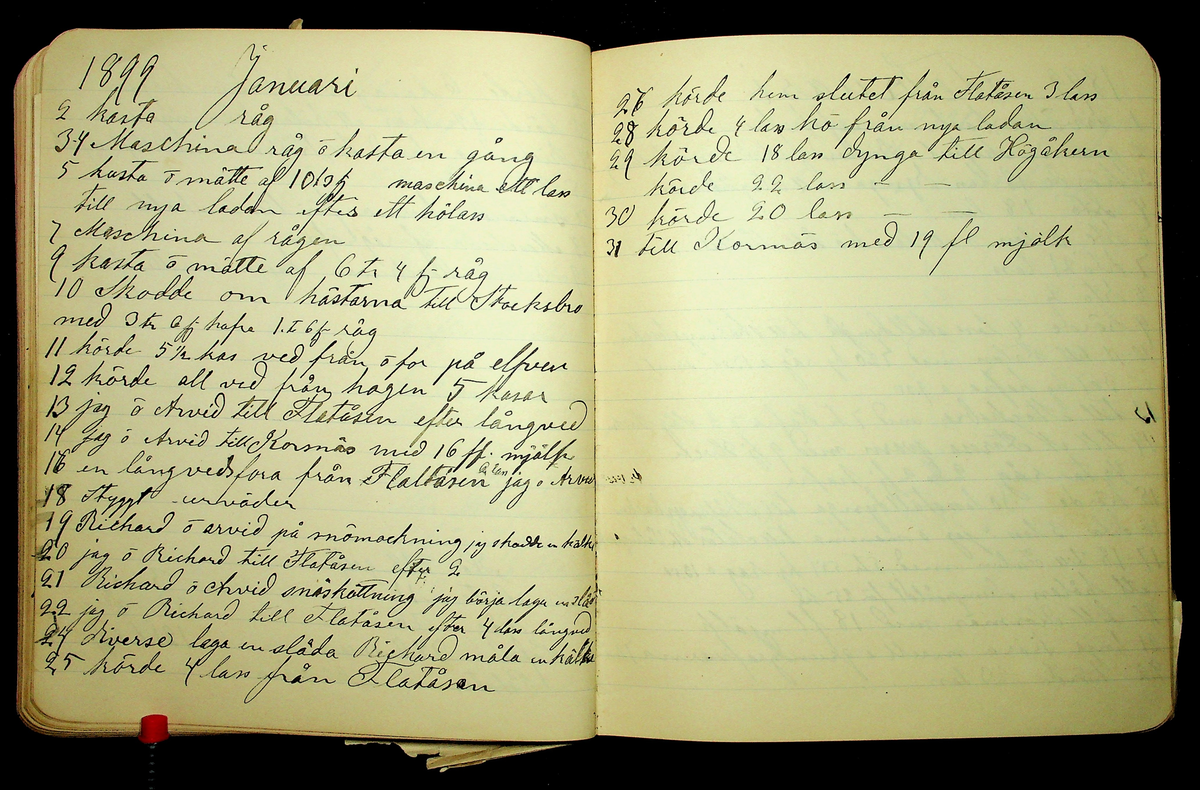 1899 Januari
2 kasta råg
3-4 Maschina råg ö kasta en gång
5 kasta ö mätte af 10 maschina ett lass
till nya ladan efter ett hölass
7 Maschina af rågen
9 kasta ö mätte af 6 tr 4 fj råg
10 Skodde om hästarna till Stocksbro
med 3 tr 6 fj hafre 1 t 6 fj råg
11 körde 5½ kas ved från ö for på elfven
12 körde all ved från hagen 5 kasar
13 jag ö Arvid till Flatåsen efter långved
14 jag ö Arvid till Kornäs med 16 ff. mjölk
16 en långvedsfora från Flatåsen jag ö Arvid
18 Styggt urväder
19 Richard ö arvid på snömockning jag skodde en kälke
20 jag ö Richard till Flatåsen efter 2
21 Richard ö Arvid snöskottning jag börja laga en släd
22 jag ö Richard till Flatåsen efter 4 lass långved
24 diverse laga en släda Richard måla en kälke
25 körde 4 lass från Flatåsen
26 körde hem slutet från Flatåsen 3 lass
28 körde 4 lass hö från nya ladan
29 körde 18 lass dynga till Högåkern
körde 22 lass — —
30 körde 20 lass — —
31 till Kornäs med 19 fl mjölk